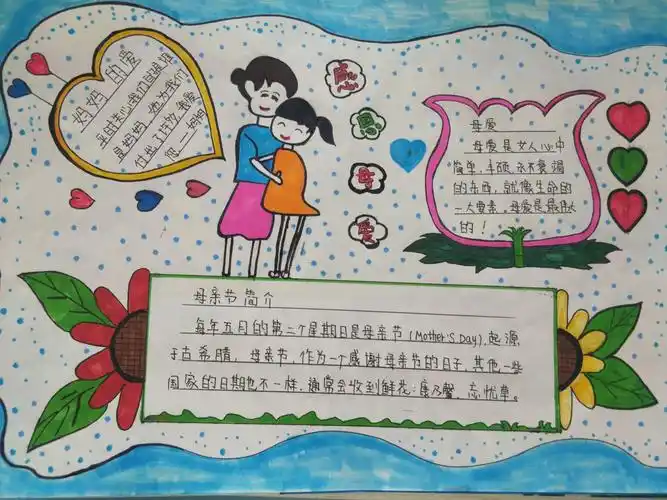 妈妈的爱
平时关心我们且操烦
是妈妈，她为我们
付出了许多，我爱
您——妈妈
感
恩
母
爱
母爱
母爱是女人心中
简单、丰硕、永不衰竭
的东西，就像生命的
一大要素。母爱是最伟大
的！
母亲节简介
每年五月的第二个星期日是母亲节(Mother's Day)，起源
于古希腊，母亲节，作为一个感谢母亲节的日子，其他一些
国家的日期也不一样，通常会收到鲜花：康乃馨、忘忧草。